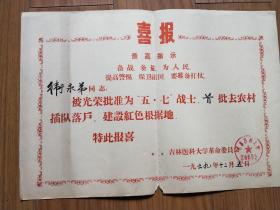 喜报
最高指示
备战、备荒、为人民。
提高警惕，保卫祖国，要准备打仗。
永弟同志：
被光荣批准为“五·七”战士，首批去农村
插队落户，建設紅色根据地。
特此报喜
吉林医科大学革命委员会
一九六九年十二月五日